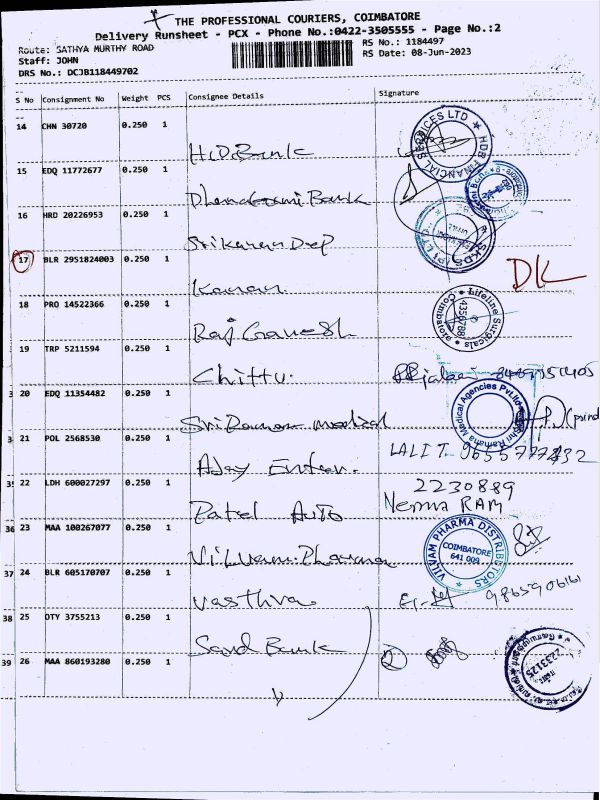 THE PROFESSIONAL COURIERS, COIMBATORE
Delivery Runsheet - PCX - Phone No.:0422-3505555 - Page No.:2
Route: SATHYA MURTHY ROAD
RS No.: 1184497
Staff: JOHN
RS Date: 08-Jun-2023
DRS No.: DCJB118449702
S No Consignment No Weight PCS Consignee Details Signature
14 CHN 30720 0.250 1
HDB FINANCIAL SERVICES LTD
15 EDQ 11772677 0.250 1
Bank
16 HRD 20226953 0.250 1
Srikaran Dep
17 BLR 2951824003 0.250 1
DK
Kannan
18 PRO 14522366 0.250 1
Lifeline Surgicals Coimbatore
4350788
Raj Ganesh
19 TRP 5211594 0.250 1
Chittu.
20 EDQ 11354482 0.250 1
Shri Ramana Medical Agencies Pvt Ltd
Medical
21 POL 2568530 0.250 1
LALIT. 9655777432
Ajay Enter.
22 LDH 600027297 0.250 1
2230889
Patel Auto
RAM
36 23 MAA 100267077 0.250 1
VILVAM PHARMA DISTRIBUTORS
COIMBATORE
641 009
Vilvam Pharma
37 24 BLR 605170707 0.250 1
Vasthra
38 25 OTY 3755213 0.250 1
Bank
39 26 MAA 860193280 0.250 1
2233125